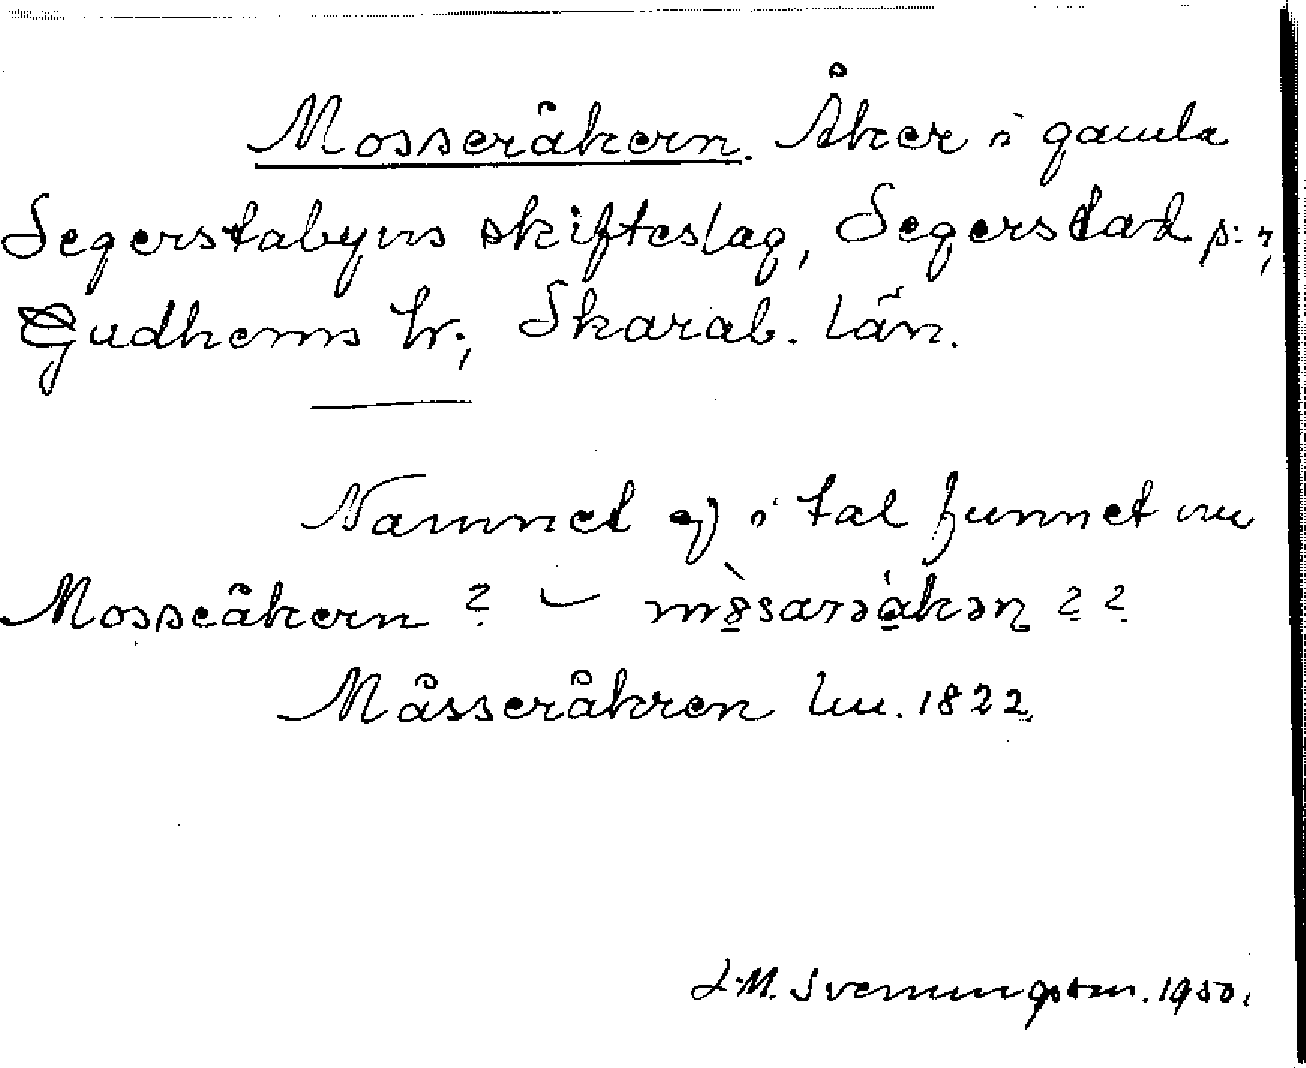 Mosseråkern. Åker i gamla
Segerstabyns skifteslag, Segerstad s:n,
Gudhems hr., Skarab. län.
Namnet ej i tal funnet nu
Mosseåkern ? – ??
Måsseråkren lm. 1822
J. M. Svenningson. 1950.